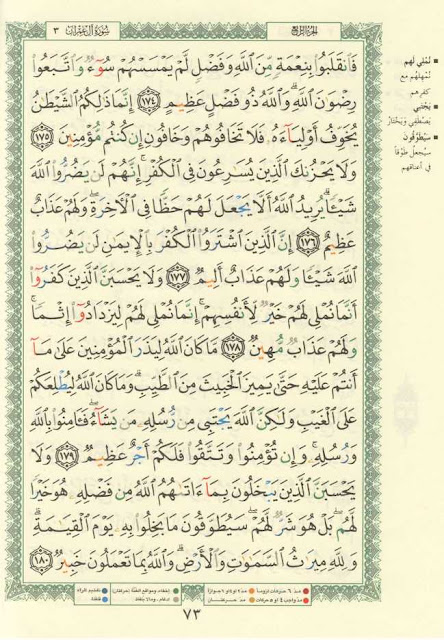 سُورَةُ آلِ عِمْرَان ٣
الجُزْءُ الرَّابِعُ
فَٱنقَلَبُوا۟ بِنِعْمَةٍ مِّنَ ٱللَّهِ وَفَضْلٍ لَّمْ يَمْسَسْهُمْ سُوٓءٌ وَٱتَّبَعُوا۟
رِضْوَٰنَ ٱللَّهِ وَٱللَّهُ ذُو فَضْلٍ عَظِيمٍ ١٧٤ إِنَّمَا ذَٰلِكُمُ ٱلشَّيْطَٰنُ
يُخَوِّفُ أَوْلِيَآءَهُۥ فَلَا تَخَافُوهُمْ وَخَافُونِ إِن كُنتُم مُّؤْمِنِينَ ١٧٥
وَلَا يَحْزُنكَ ٱلَّذِينَ يُسَٰرِعُونَ فِى ٱلْكُفْرِ إِنَّهُمْ لَن يَضُرُّوا۟ ٱللَّهَ
شَيْـًٔا يُرِيدُ ٱللَّهُ أَلَّا يَجْعَلَ لَهُمْ حَظًّا فِى ٱلْـَٔاخِرَةِ وَلَهُمْ عَذَابٌ
عَظِيمٌ ١٧٦ إِنَّ ٱلَّذِينَ ٱشْتَرَوُا۟ ٱلْكُفْرَ بِٱلْإِيمَٰنِ لَن يَضُرُّوا۟
ٱللَّهَ شَيْـًٔا وَلَهُمْ عَذَابٌ أَلِيمٌ ١٧٧ وَلَا يَحْسَبَنَّ ٱلَّذِينَ كَفَرُوٓا۟
أَنَّمَا نُمْلِى لَهُمْ خَيْرٌ لِّأَنفُسِهِمْ إِنَّمَا نُمْلِى لَهُمْ لِيَزْدَادُوٓا۟ إِثْمًا
وَلَهُمْ عَذَابٌ مُّهِينٌ ١٧٨ مَّا كَانَ ٱللَّهُ لِيَذَرَ ٱلْمُؤْمِنِينَ عَلَىٰ مَآ
أَنتُمْ عَلَيْهِ حَتَّىٰ يَمِيزَ ٱلْخَبِيثَ مِنَ ٱلطَّيِّبِ وَمَا كَانَ ٱللَّهُ لِيُطْلِعَكُمْ
عَلَى ٱلْغَيْبِ وَلَٰكِنَّ ٱللَّهَ يَجْتَبِى مِن رُّسُلِهِۦ مَن يَشَآءُ فَـَٔامِنُوا۟ بِٱللَّهِ
وَرُسُلِهِۦ وَإِن تُؤْمِنُوا۟ وَتَتَّقُوا۟ فَلَكُمْ أَجْرٌ عَظِيمٌ ١٧٩ وَلَا
يَحْسَبَنَّ ٱلَّذِينَ يَبْخَلُونَ بِمَآ ءَاتَىٰهُمُ ٱللَّهُ مِن فَضْلِهِۦ هُوَ خَيْرًا
لَّهُم بَلْ هُوَ شَرٌّ لَّهُمْ سَيُطَوَّقُونَ مَا بَخِلُوا۟ بِهِۦ يَوْمَ ٱلْقِيَٰمَةِ
وَلِلَّهِ مِيرَٰثُ ٱلسَّمَٰوَٰتِ وَٱلْأَرْضِ وَٱللَّهُ بِمَا تَعْمَلُونَ خَبِيرٌ ١٨٠
■ نُمْلِي لَهُم
نُمْهِلُهُم مع
كفرهم
■ يَجْتَبِي
يَصْطَفِي وَيَخْتَارُ
■ سَيُطَوَّقُونَ
سَيُجْعَلُ طَوْقاً
في أعناقهم
مدّ ٦ حركات لزوماً
مدّ ٢ أو ٤ أو ٦ جوازاً
إخفاء، ومواقع الغُنَّة (حركتان)
تفخيم الراء
مدّ واجب ٤ أو ٥ حركات
مدّ حركتان
إدغام، ومالا يُلفَظ
قلقلة
٧٣